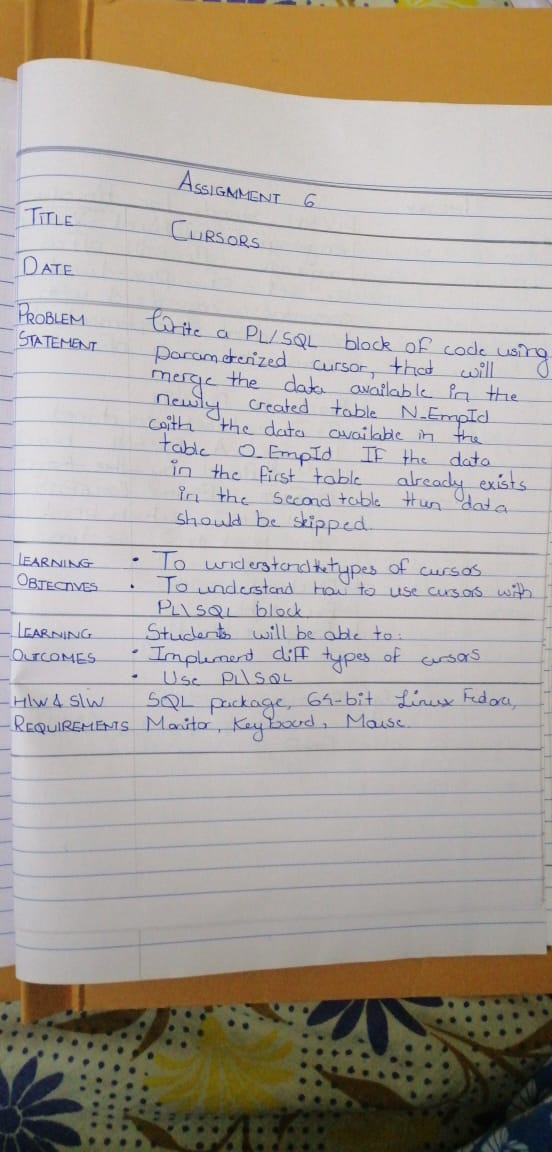 ASSIGNMENT 6
TITLE CURSORS
DATE
PROBLEM Write a PL/SQL block of code using
STATEMENT parameterized cursor, that will
merge the data available in the
newly created table N_EmpId
with the data available in the
table O_EmpId IF the data
in the first table already exists
in the second table then data
should be skipped.
LEARNING • To understand the types of cursos
OBJECTIVES • To understand how to use cursors with
PL\SQL block.
LEARNING Students will be able to:
OUTCOMES • Implement diff types of cursos
• Use Pl\SQL
H/W & S/W SQL package, 64-bit Linux Fedora,
REQUIREMENTS Monitor, Keyboard, Mouse.